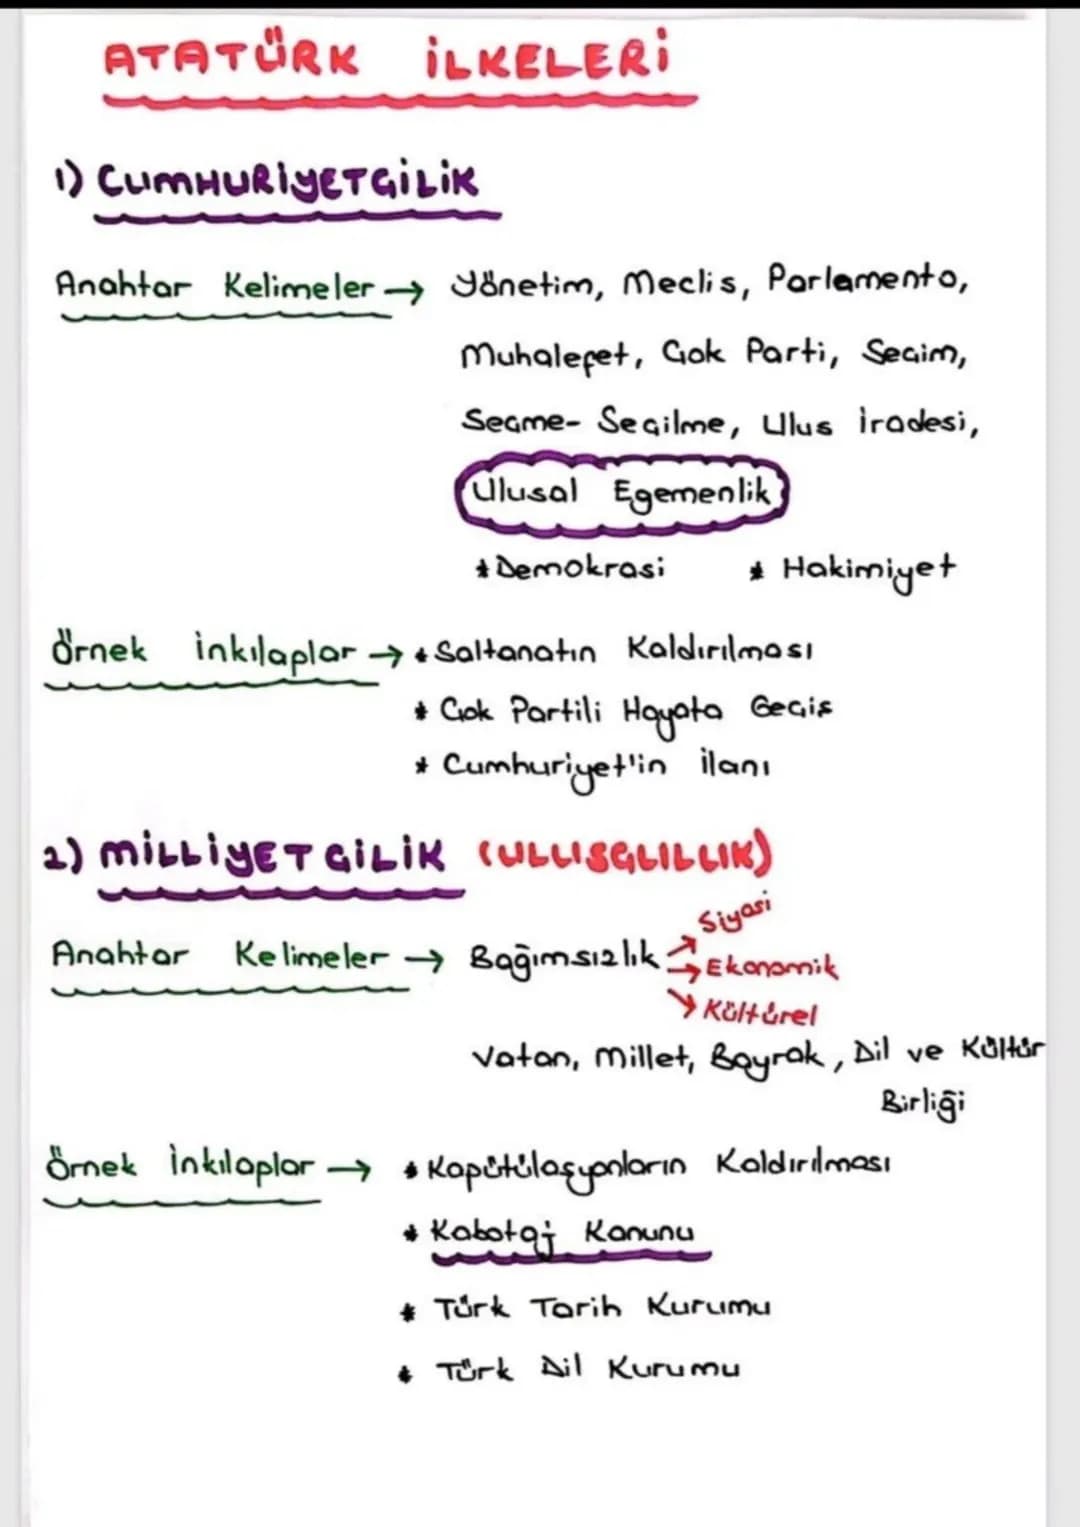 ATATÜRK İLKELERİ
1) CUMHURİYETÇİLİK
Anahtar Kelimeler → Yönetim, Meclis, Parlamento,
Muhalefet, Çok Parti, Seçim,
Seçme- Seçilme, Ulus İradesi,
Ulusal Egemenlik
* Demokrasi * Hakimiyet
Örnek İnkılaplar → * Saltanatın Kaldırılması
* Çok Partili Hayata Geçiş
* Cumhuriyet'in İlanı
2) MİLLİYETÇİLİK (ULUSÇULUK)
Anahtar Kelimeler → Bağımsızlık → Siyasi
→ Ekonomik
→ Kültürel
Vatan, Millet, Bayrak, Dil ve Kültür
Birliği
Örnek İnkılaplar → * Kapütülasyonların Kaldırılması
* Kabotaj Kanunu
* Türk Tarih Kurumu
* Türk Dil Kurumu